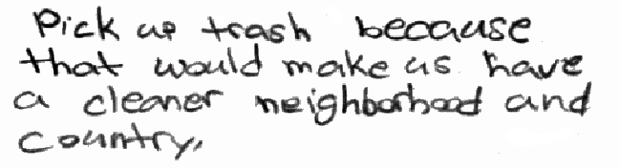 Pick up trash because
that would make us have
a cleaner neighborhood and
country.